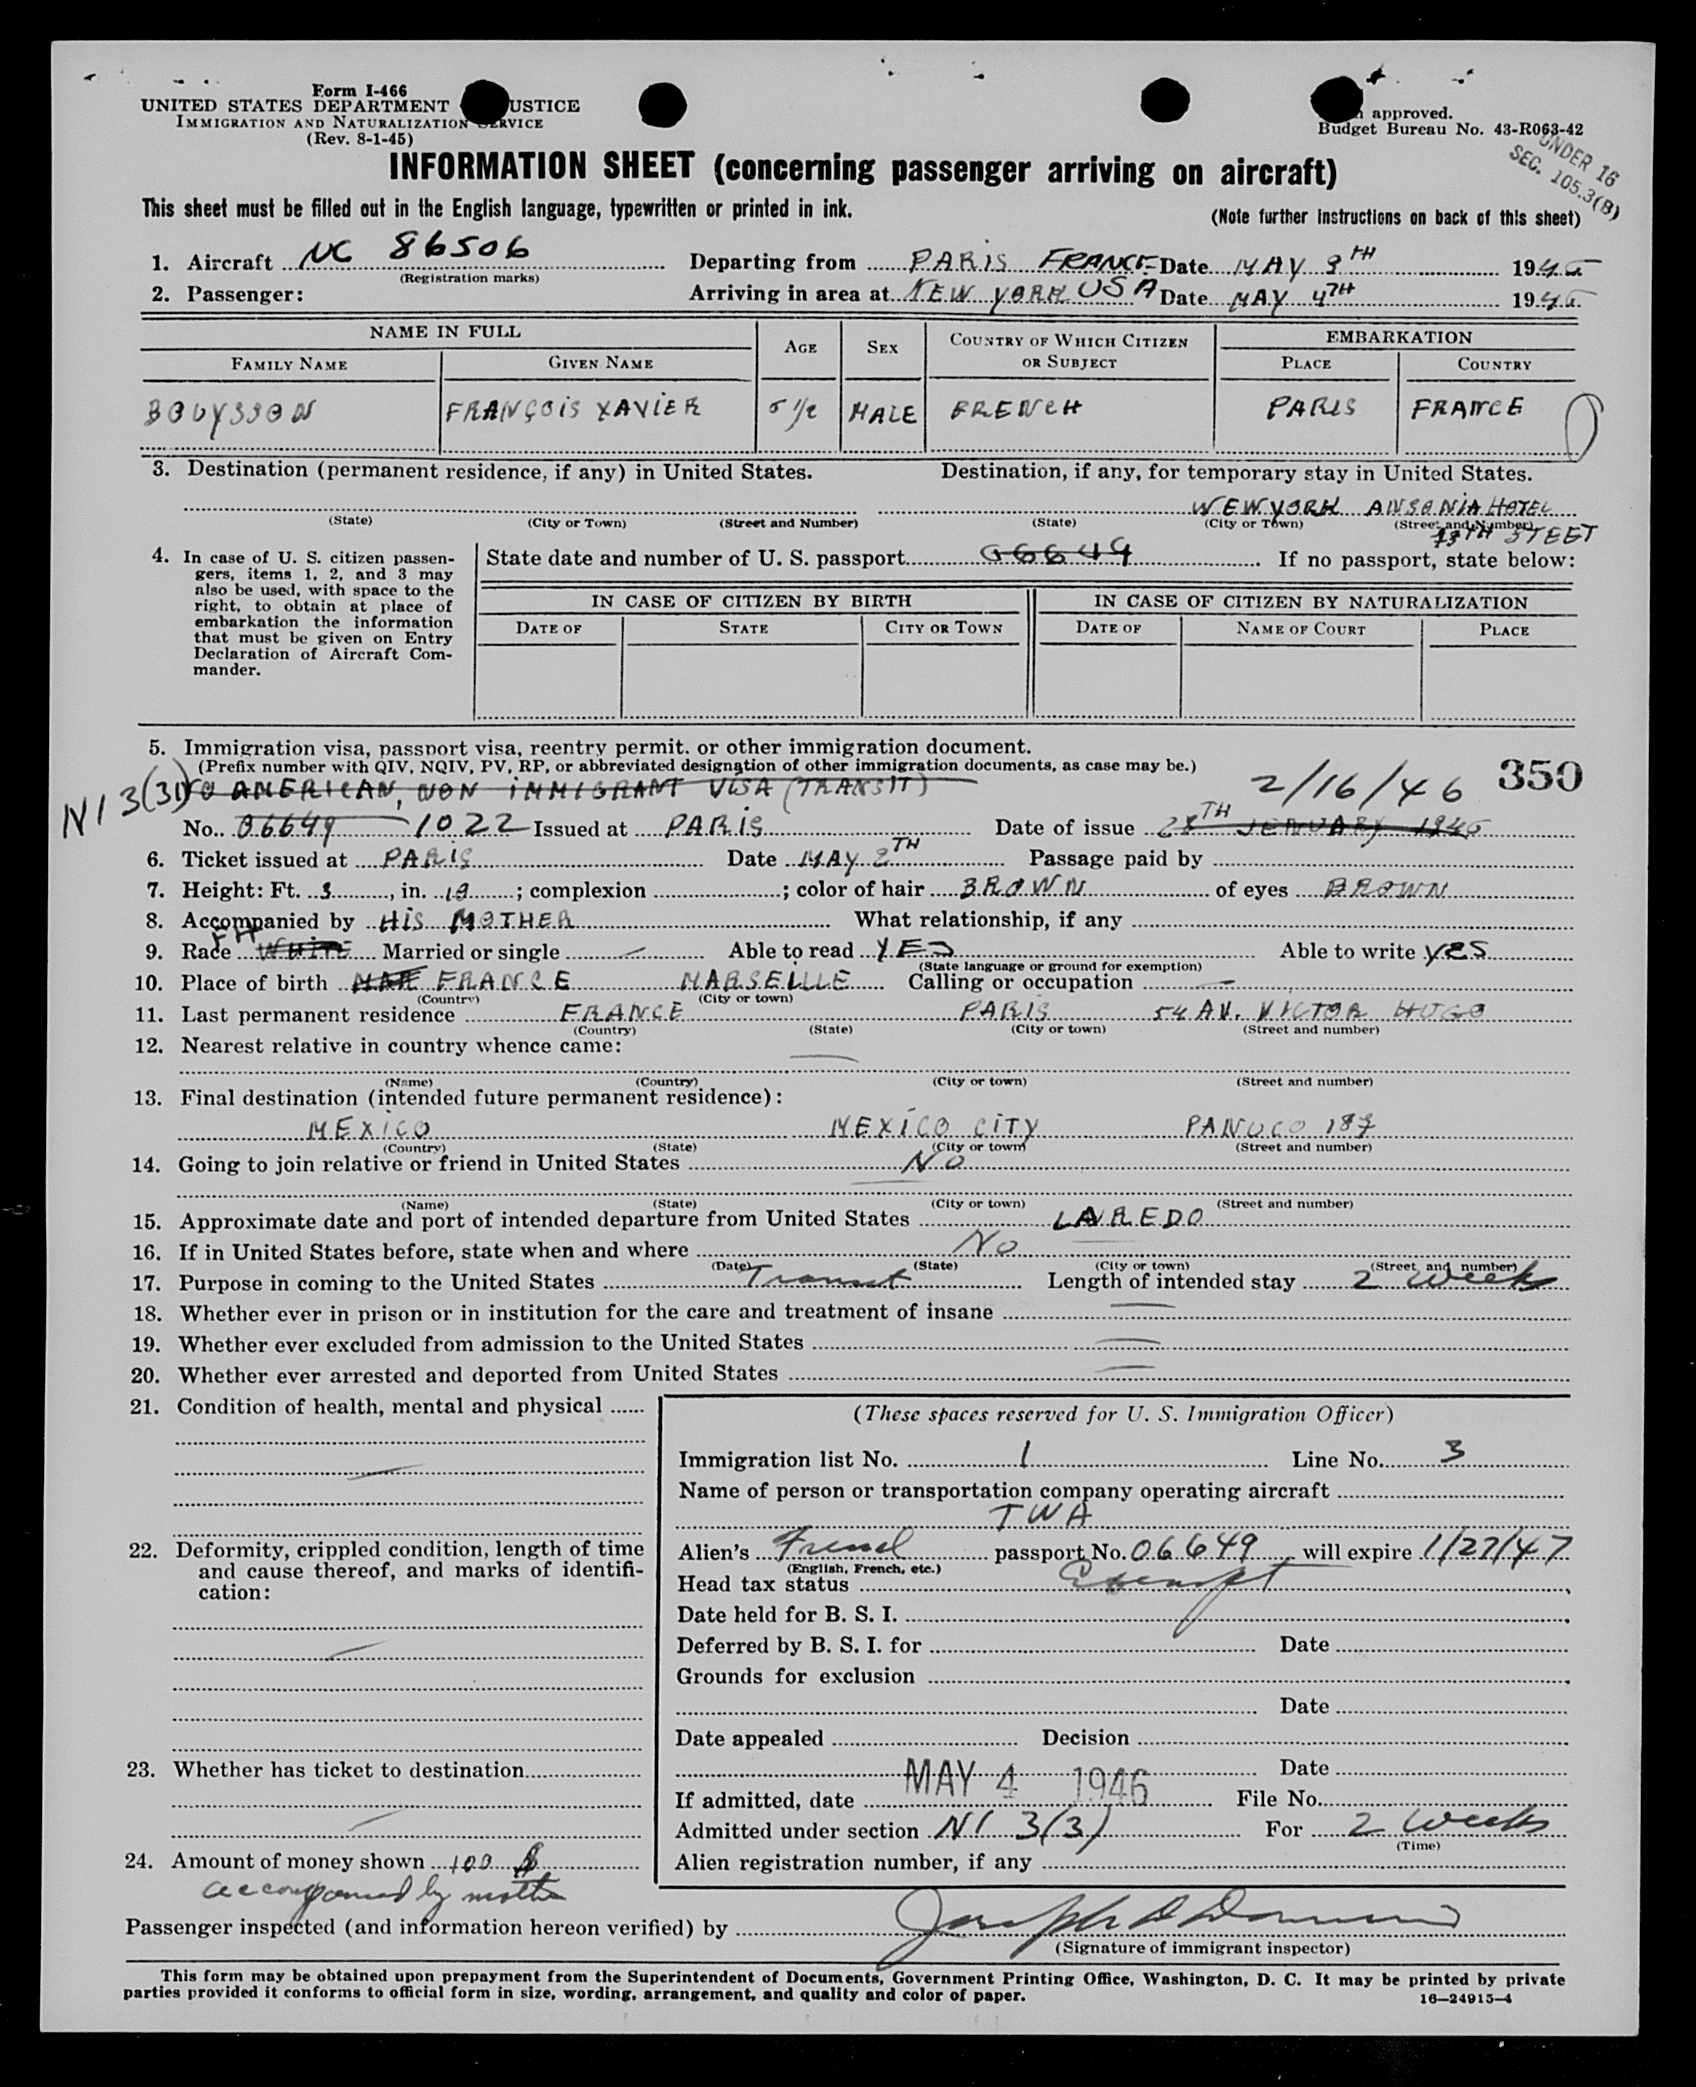 Form I-466
UNITED STATES DEPARTMENT USTICE
IMMIGRATION AND NATURALIZATION SERVICE
(Rev. 8-1-45)
approved.
Budget Bureau No. 43-R063-42
UNDER 16
SEC. 105.3(B)
INFORMATION SHEET (concerning passenger arriving on aircraft)
This sheet must be filled out in the English language, typewritten or printed in ink.
(Note further instructions on back of this sheet)
1. Aircraft NC 86506 Departing from PARIS FRANCE Date MAY 3TH 1946
(Registration marks)
2. Passenger: Arriving in area at NEW YORK USA Date MAY 4TH 1946
NAME IN FULL AGE SEX COUNTRY OF WHICH CITIZEN OR SUBJECT EMBARKATION
FAMILY NAME GIVEN NAME PLACE COUNTRY
BOUYSSON FRANÇOIS XAVIER 5 1/2 MALE FRENCH PARIS FRANCE
3. Destination (permanent residence, if any) in United States. Destination, if any, for temporary stay in United States.
NEW YORK ANSONIA HOTEL
(State) (City or Town) (Street and Number) (State) (City or Town) (Street and Number)
73TH STEET
4. In case of U. S. citizen passen-
gers, items 1, 2, and 3 may
also be used, with space to the
right, to obtain at place of
embarkation the information
that must be given on Entry
Declaration of Aircraft Com-
mander.
State date and number of U. S. passport 06649 If no passport, state below:
IN CASE OF CITIZEN BY BIRTH IN CASE OF CITIZEN BY NATURALIZATION
DATE OF STATE CITY OR TOWN DATE OF NAME OF COURT PLACE
5. Immigration visa, passport visa, reentry permit, or other immigration document.
(Prefix number with QIV, NQIV, PV, RP, or abbreviated designation of other immigration documents, as case may be.)
350
NI 3(3) AMERICAN, NON IMMIGRANT VISA (TRANSIT) 2/16/46
No. 06649 1022 Issued at PARIS Date of issue 28TH JENUARY 1946
6. Ticket issued at PARIS Date MAY 2TH Passage paid by
7. Height: Ft. 3, in. 10; complexion ; color of hair BROWN of eyes BROWN
8. Accompanied by HIS MOTHER What relationship, if any
9. Race WHITE FH Married or single — Able to read YES Able to write YES
(State language or ground for exemption)
10. Place of birth FRANCE MARSEILLE Calling or occupation —
(Country) (City or town)
11. Last permanent residence FRANCE PARIS 54 AV. VICTOR HUGO
(Country) (State) (City or town) (Street and number)
12. Nearest relative in country whence came: —
(Name) (Country) (City or town) (Street and number)
13. Final destination (intended future permanent residence):
MEXICO MEXICO CITY PANUCO 187
(Country) (State) (City or town) (Street and number)
14. Going to join relative or friend in United States NO
(Name) (State) (City or town) (Street and number)
15. Approximate date and port of intended departure from United States LAREDO
16. If in United States before, state when and where NO
(Date) (State) (City or town) (Street and number)
17. Purpose in coming to the United States Transit Length of intended stay 2 weeks
18. Whether ever in prison or in institution for the care and treatment of insane —
19. Whether ever excluded from admission to the United States —
20. Whether ever arrested and deported from United States —
21. Condition of health, mental and physical
—
22. Deformity, crippled condition, length of time
and cause thereof, and marks of identifi-
cation:
—
23. Whether has ticket to destination
—
24. Amount of money shown 100 $
accompanied by mother
(These spaces reserved for U. S. Immigration Officer)
Immigration list No. 1 Line No. 3
Name of person or transportation company operating aircraft
TWA
Alien's French passport No. 06649 will expire 1/27/47
(English, French, etc.)
Head tax status Exempt
Date held for B. S. I.
Deferred by B. S. I. for Date
Grounds for exclusion
Date
Date appealed Decision
Date
If admitted, date MAY 4 1946 File No.
Admitted under section NI 3(3) For 2 weeks
(Time)
Alien registration number, if any
Passenger inspected (and information hereon verified) by Joseph D
(Signature of immigrant inspector)
This form may be obtained upon prepayment from the Superintendent of Documents, Government Printing Office, Washington, D. C. It may be printed by private
parties provided it conforms to official form in size, wording, arrangement, and quality and color of paper.
16—24915-4